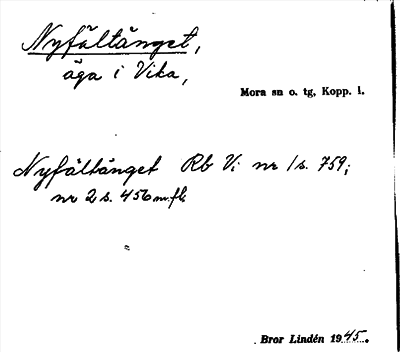 Nyfältänget,
äga i Vika,
Mora sn o. tg, Kopp. l.
Nyfältänget Rb Vi nr 1 s. 759;
nr 2 s. 456 m.fl.
Bror Lindén 1945.